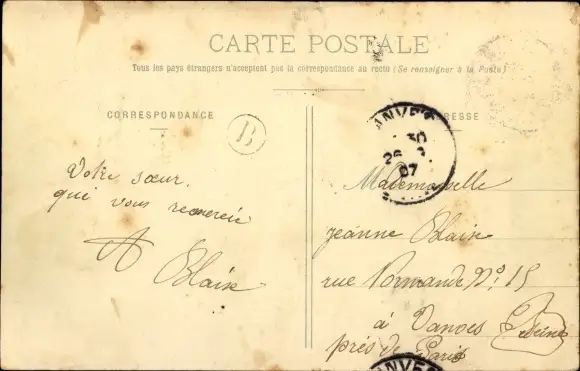 CARTE POSTALE
Tous les pays étrangers n'acceptent pas la correspondance au recto (Se renseigner à la Poste)
CORRESPONDANCE
B
Votre sœur
qui vous remercie
A Blaik
ANVES
30
26
07
RESSE
Mademoiselle
Jeanne Blaik
rue Normande No 15
à Vanves Seine
près de Paris
ANVES